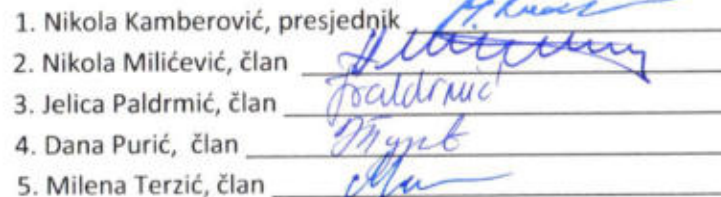 1. Nikola Kamberović, presjednik
2. Nikola Milićević, član
3. Jelica Paldrmić, član Paldrmić
4. Dana Purić, član
5. Milena Terzić, član